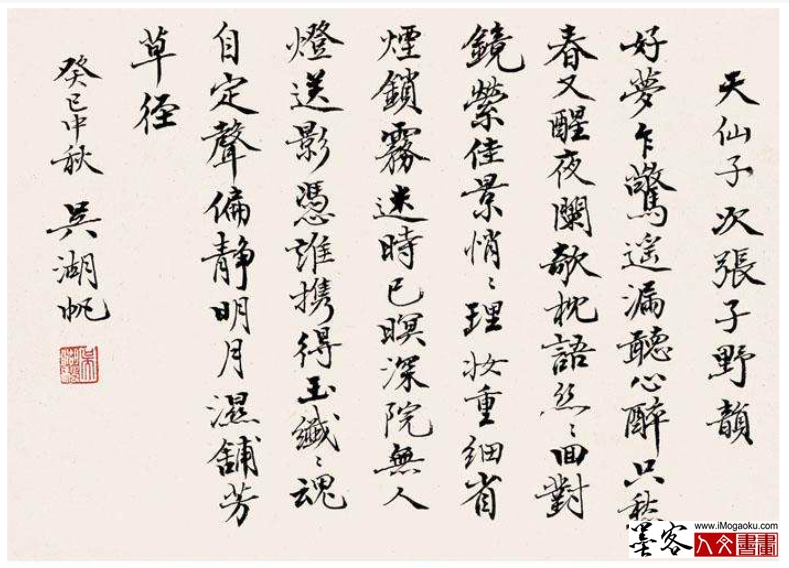 天仙子次張子野韻
好夢乍驚遙漏聽心醉只愁
春又醒夜闌欹枕語丝〻回對
鏡縈佳景悄〻理妝重細省
煙鎖霧迷時已暝深院無人
燈送影憑誰携得玉纖〻魂
自定聲偏靜明月濕鋪芳
草径
癸巳中秋 吳湖帆
墨客
www.iMogaoku.com
人文書畫